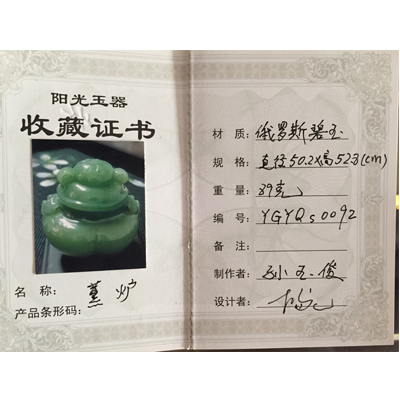 阳光玉器
收藏证书
名 称: 薰炉
产品条形码:
材 质: 俄罗斯碧玉
规 格: 直径50.2x高52.3(cm)
重 量: 89克
编 号: YGYQs0092
备 注:
制作者: 孙玉俊
设计者: